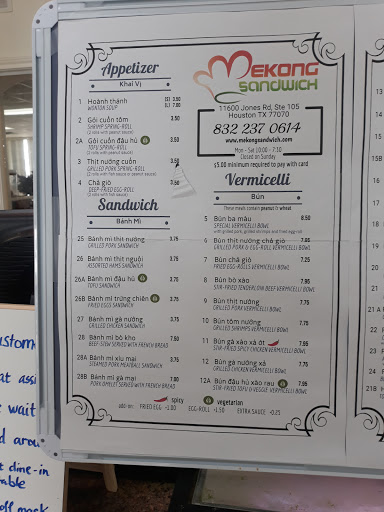 Appetizer
Khai Vị
1 Hoành thánh (S) 3.50
WONTON SOUP (L) 7.50
2 Gỏi cuốn tôm 3.50
SHRIMP SPRING-ROLL
(2 rolls with peanut sauce)
2A Gỏi cuốn đậu hủ 3.50
TOFU SPRING-ROLL
(2 rolls with peanut sauce)
3 Thịt nướng cuốn 3.50
GRILLED PORK SPRING-ROLL
(2 rolls with peanut sauce)
4 Chả giò 3.50
DEEP-FRIED EGG-ROLL
Sandwich
Bánh Mì
25 Bánh mì thịt nướng 3.75
GRILLED PORK SANDWICH
26 Bánh mì thịt nguội 3.75
ASSORTED HAMS SANDWICH
26A Bánh mì đậu hủ 2.75
TOFU SANDWICH
26B Bánh mì trứng chiên 3.75
FRIED EGGS SANDWICH
27 Bánh mì gà nướng 3.75
GRILLED CHICKEN SANDWICH
28 Bánh mì bò kho 7.50
BEEF-STEW SERVED WITH FRENCH BREAD
28A Bánh mì xíu mại 3.75
STEAMED PORK MEATBALL SANDWICH
28B Bánh mì gà mại 7.00
PORK OMELET SERVED WITH FRENCH BREAD
MEKONG
SANDWICH
11600 Jones Rd, Ste 105
Houston TX 77070
832 237 0614
www.mekongsandwich.com
Mon - Sat 10:00 - 7:30
Closed on Sunday
$5.00 minimum required to pay with card
Vermicelli
Bún
These meals contain peanut & wheat
5 Bún ba màu 8.50
SPECIAL VERMICELLI BOWL
with grilled pork, grilled shrimps and fried egg-roll
6 Bún thịt nướng chả giò 7.95
GRILLED PORK & EGG-ROLL VERMICELLI BOWL
7 Bún chả giò 7.25
FRIED EGG-ROLLS VERMICELLI BOWL
8 Bún bò xào 7.95
STIR-FRIED TENDERLOIN BEEF VERMICELLI BOWL
9 Bún thịt nướng 7.75
GRILLED PORK VERMICELLI BOWL
10 Bún tôm nướng 7.75
GRILLED SHRIMPS VERMICELLI BOWL
11 Bún gà xào xả ớt 7.75
STIR-FRIED SPICY CHICKEN VERMICELLI BOWL
12 Bún gà nướng xả 7.75
GRILLED CHICKEN VERMICELLI BOWL
12A Bún đậu hủ xào rau 7.95
STIR-FRIED TOFU & VEGGIE VERMICELLI BOWL
spicy vegetarian
add-on: FRIED EGG -1.00 EGG-ROLL -1.50 EXTRA SAUCE -0.25
13
14
15
15B
16
17
18
19
20
21
21A
21B
at assi
wait
d arou
dine-in
off mask